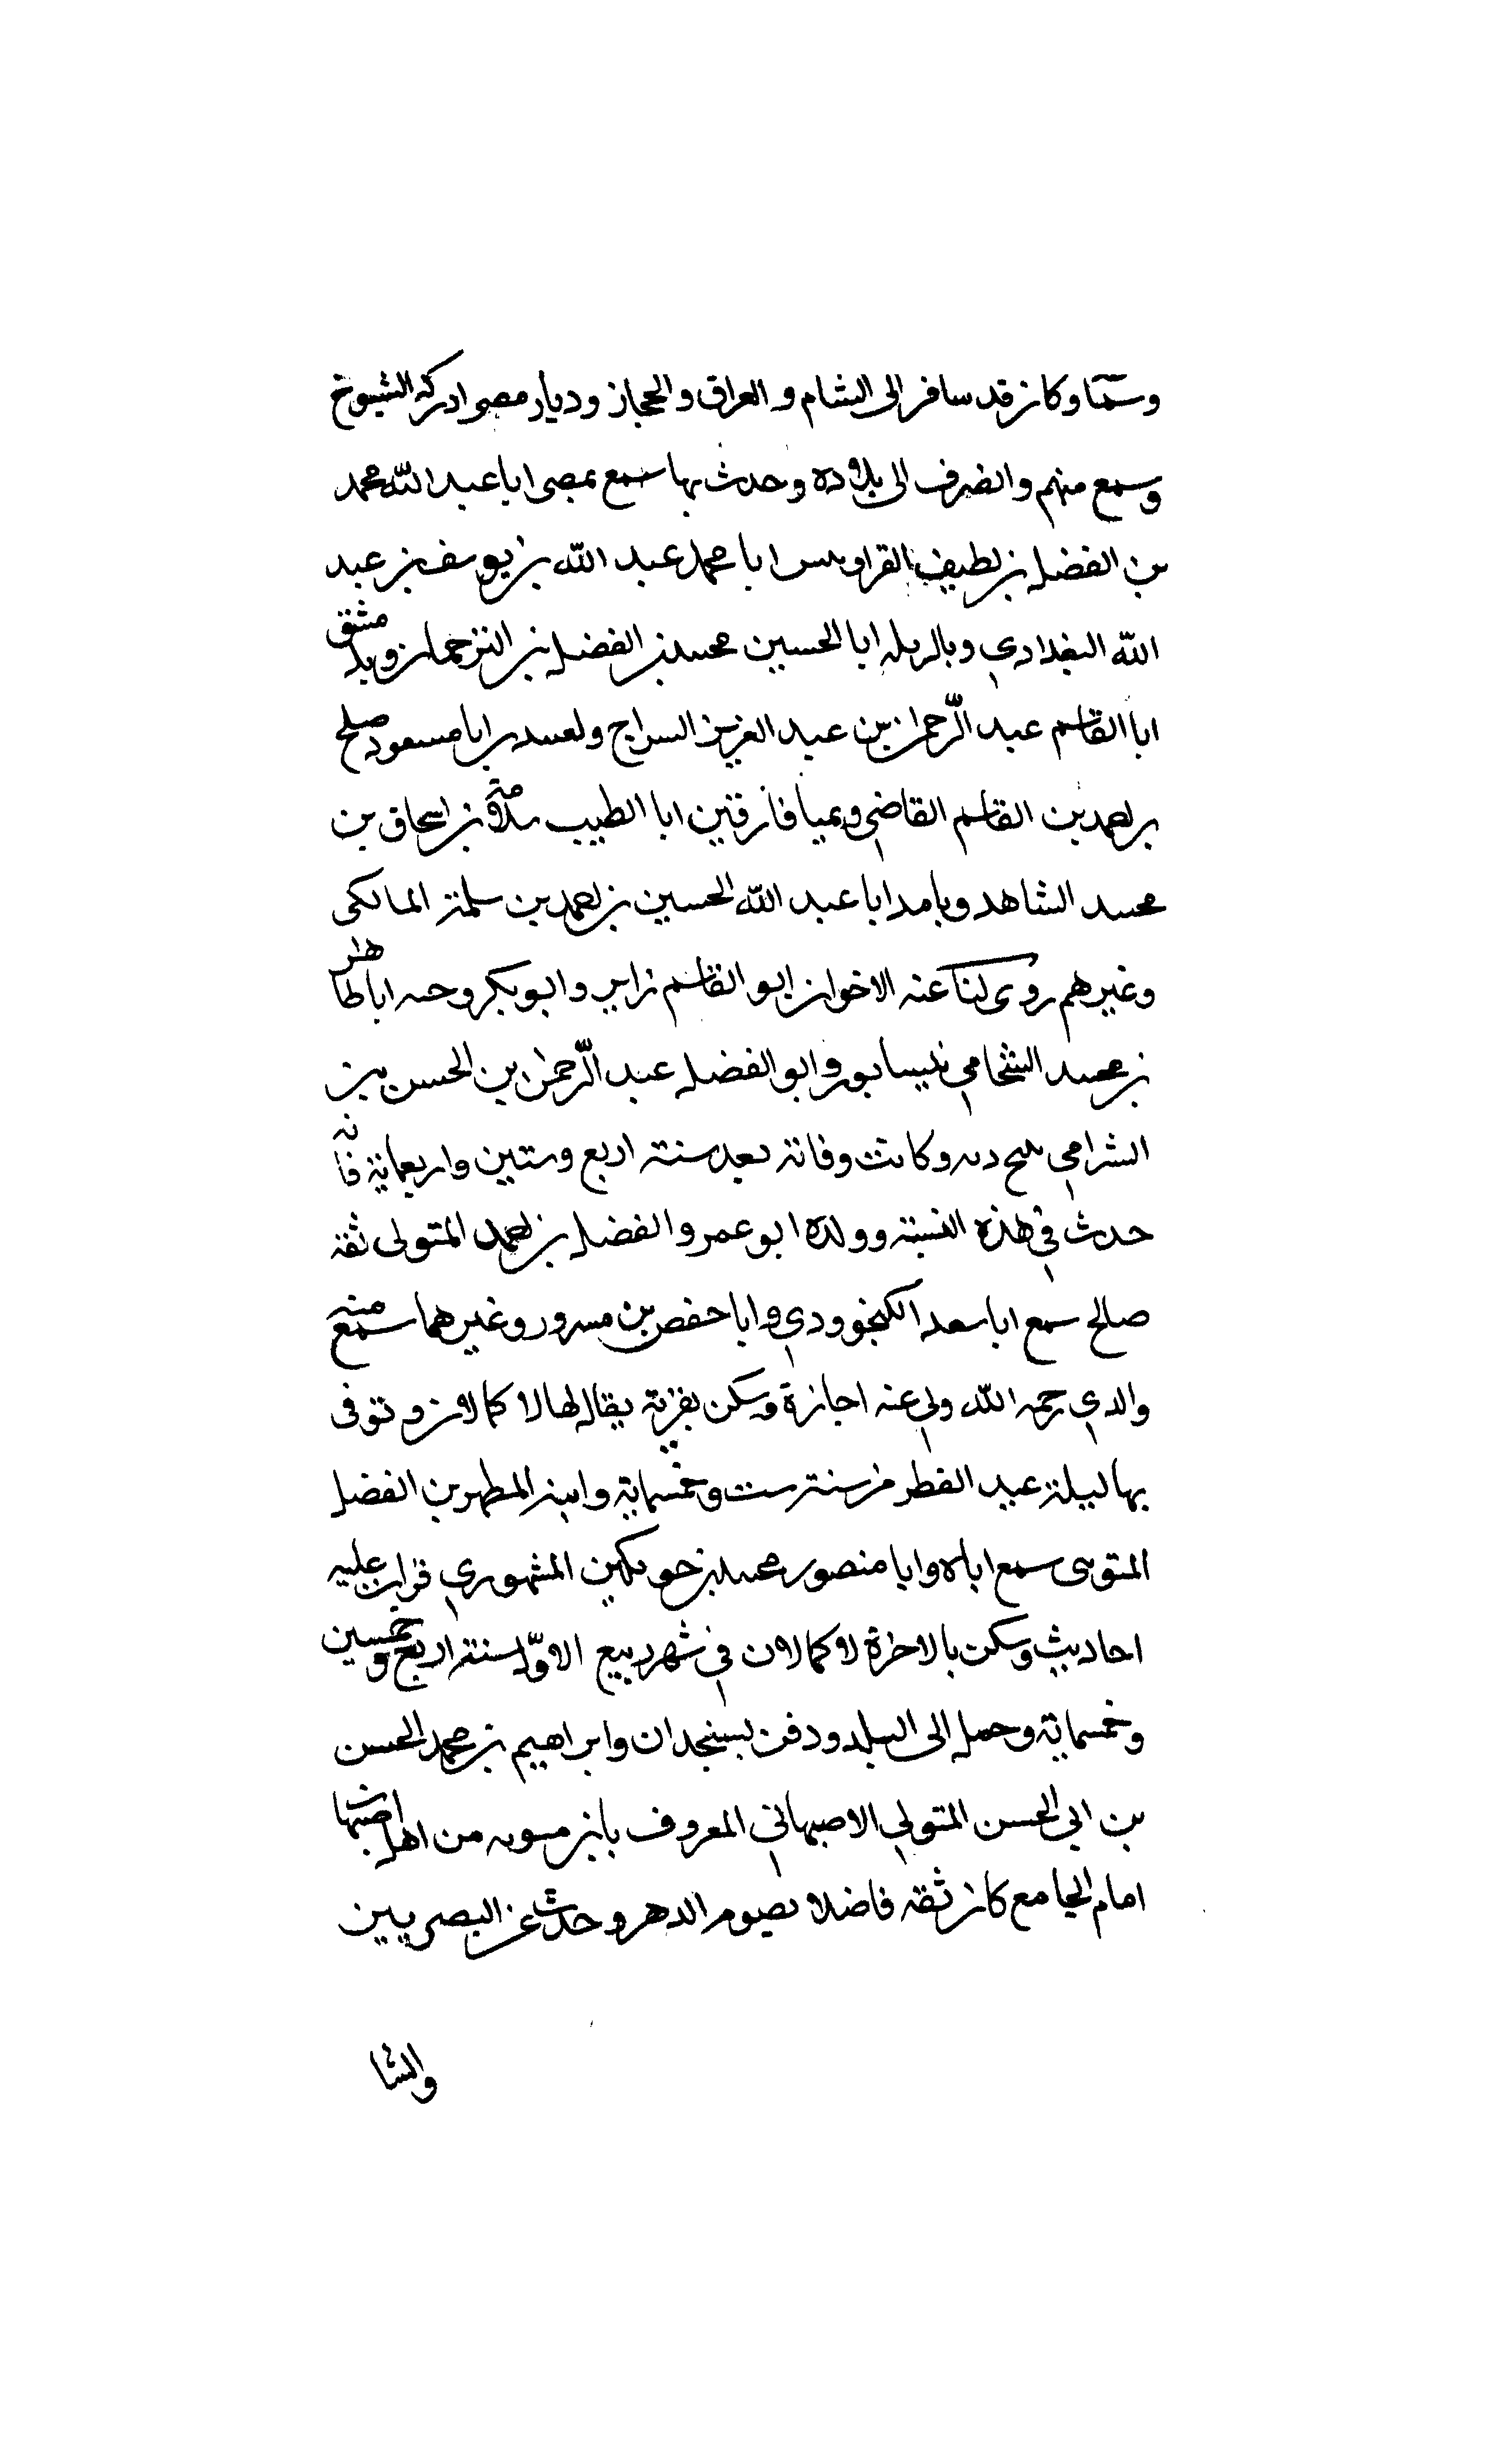 وسمتا وكان قد سافر الى الشام و العراق والحجاز وديار مصر ادرك الشيوخ
وسمع منهم وانصرف الى بلاده وحدث بها سمع بمصر ابا عبد الله محمد
بن الفضل بن لطيف ابا محمد عبد الله بن يوسف بن عبد
الله البغدادي وبالرمله ابا الحسين محمد بن الفضل بن الترجمان وبدمشق
ابا القاسم عبد الرحمن بن عبد العزيز السراج ابا مسعود صلح
بن احمد بن القاسم القاضي وبميافارقين ابا الطيب سلامة بن اسحاق بن
محمد الشاهد وبامد ابا عبد الله الحسين بن احمد بن سلمة المالكى
وغيرهم روى لنا عنه الاخوان ابو القاسم زاهر وابو بكر وحه ابا طاهر
بن محمد الشحامي نيسابور وابو الفضل عبد الرحمن بن الحسن بن
الشرامي وكانت وفاته بعد سنة اربع وستين واربعماية فانه
حدث في هذه النسبة وولده ابو عمرو الفضل بن احمد المتولى ثقه
صالح سمع ابا سعد الكنجرودي وابا حفص بن مسرور وغيرهما سمع منه
والدي رحمه الله ولي عنه اجازة وسكن بقرية يقال لها لاكمالان وتوفى
بها ليلة عيد الفطر من سنة ست وخمسماية وابنه المطهر بن الفضل
المتوبى سمع اباه وابا منصور محمد بن المشهوري قرات عليه
احاديث وسكن بالاخرة لاكمالان في شهر ربيع الاوّل سنة اربع وخمسين
وخمسماية وحمل الى البلد ودفن بسنجدان وابراهيم بن محمد الحسن
بن ابي الحسن المتولي الاصبهاني المعروف بابن متويه من اهل اصبهان
امام الجامع كان ثقه فاضلا يصوم الدهر وحدث عن البصريين
والشا